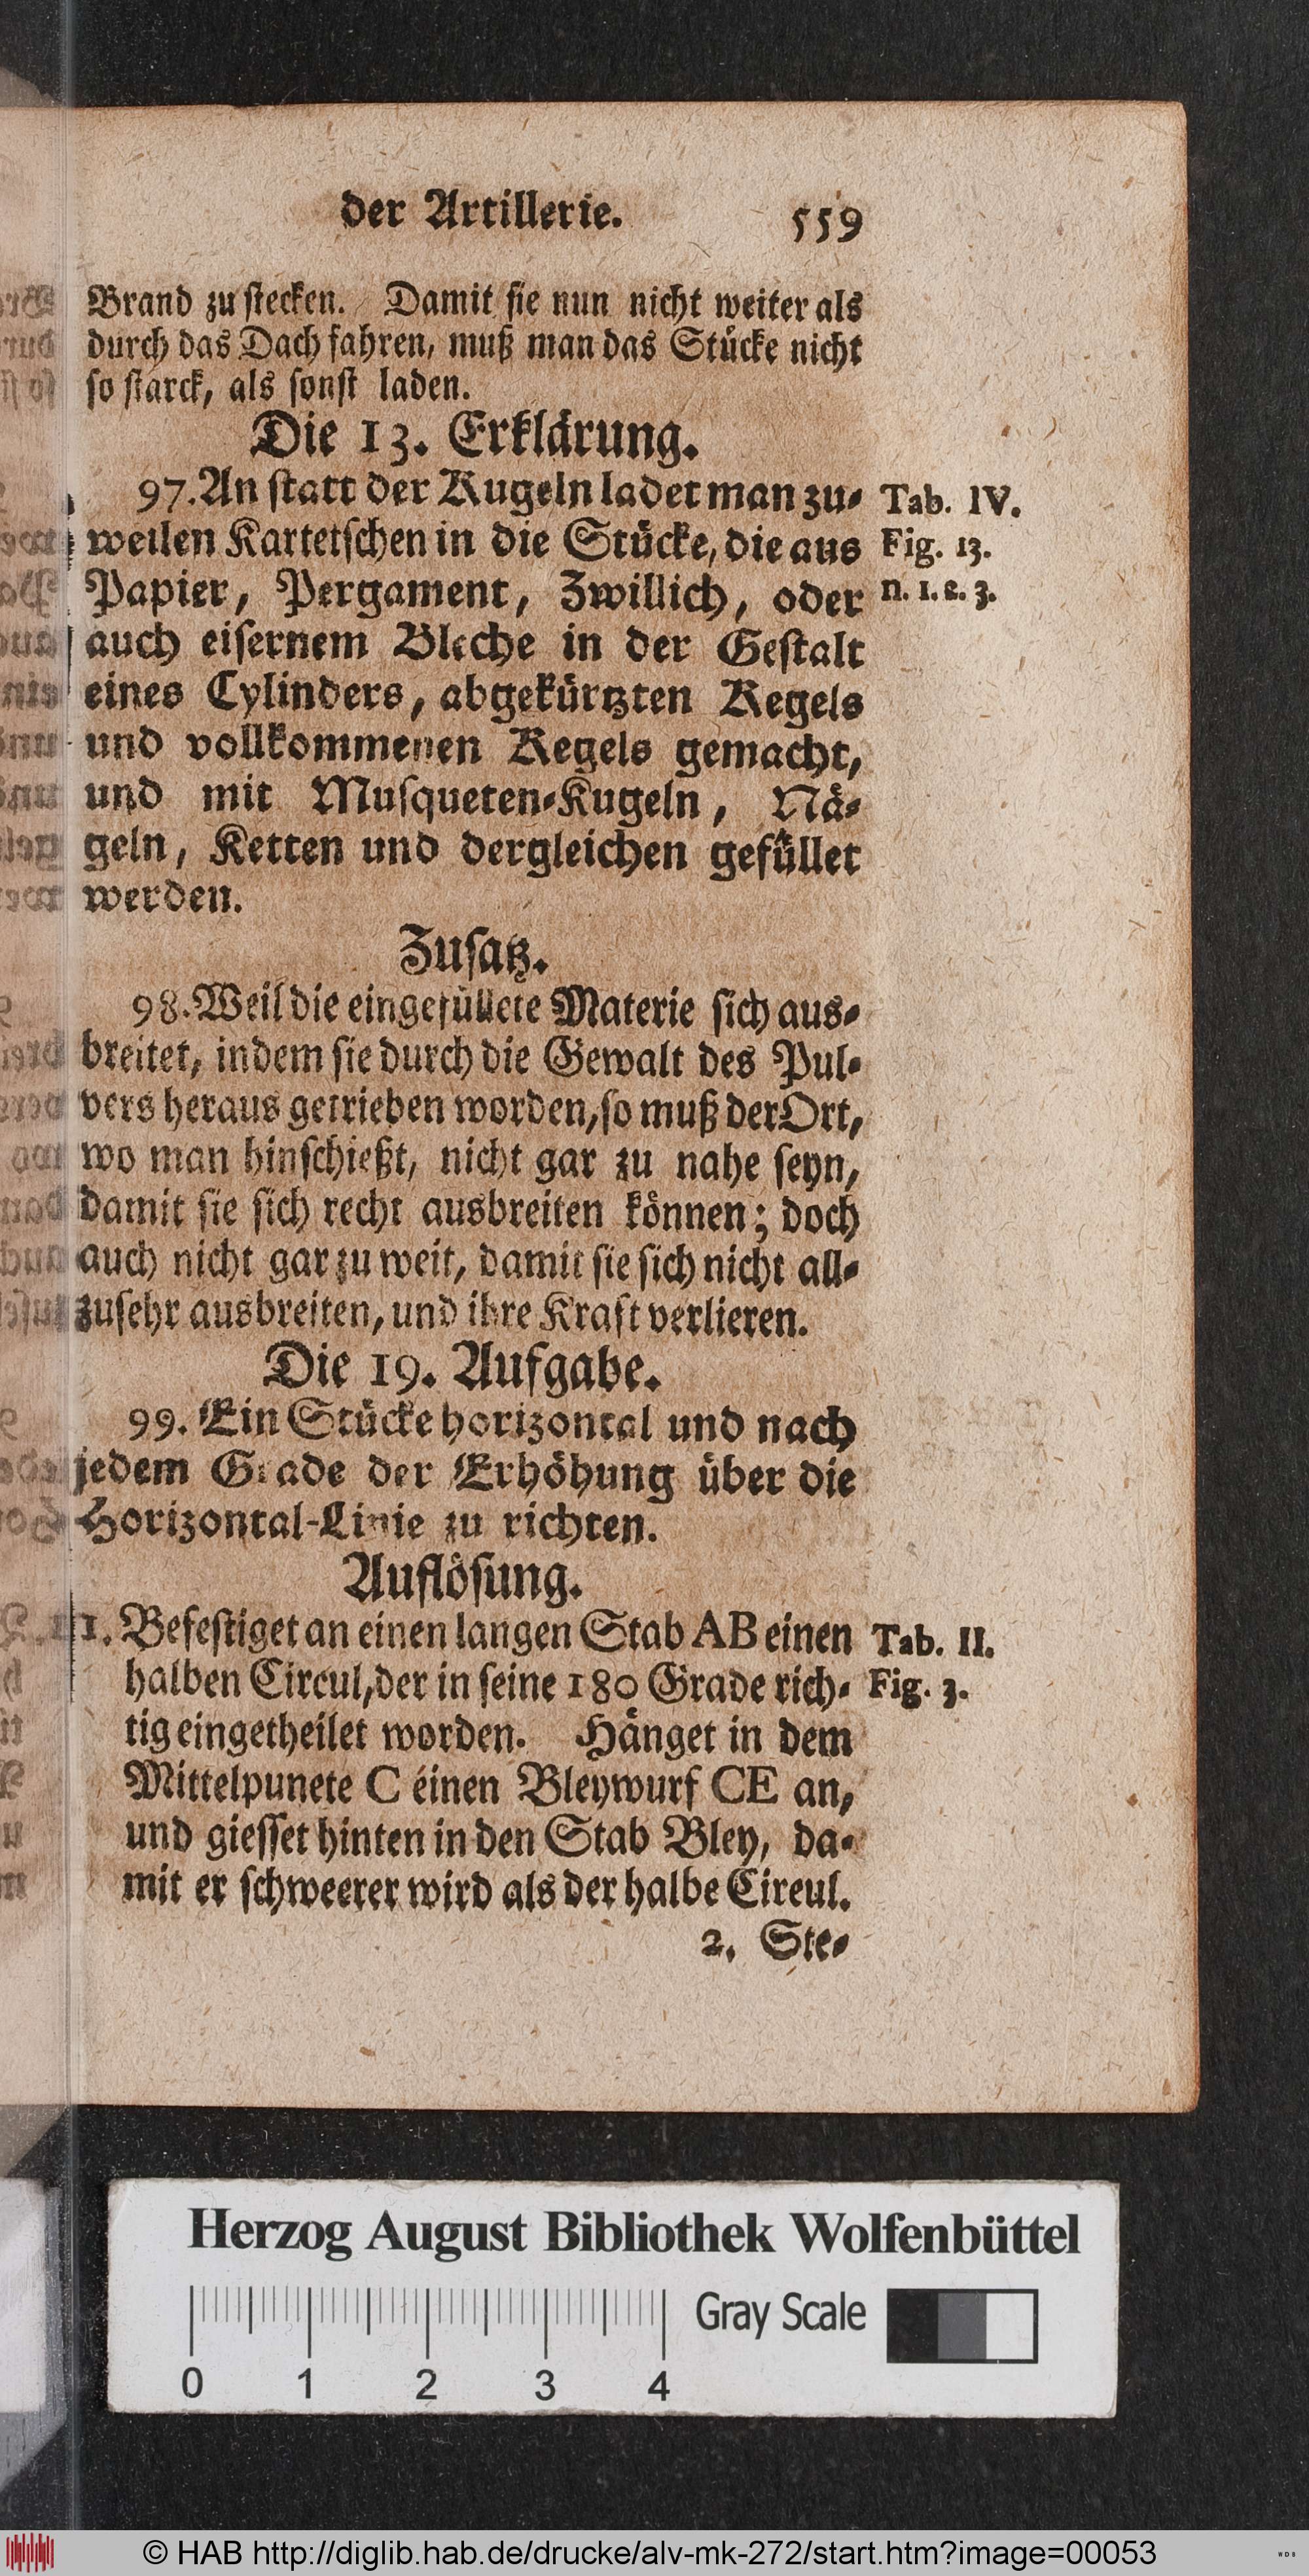 der Artillerie. 559
Brand zu stecken. Damit sie nun nicht weiter als
durch das Dach fahren, muß man das Stücke nicht
so starck, als sonst laden.
Die 13. Erklärung.
97. An statt der Kugeln ladet man zu-
weilen Kartetschen in die Stücke, die aus
Papier, Pergament, Zwillich, oder
auch eisernem Bleche in der Gestalt
eines Cylinders, abgekürtzten Kegels
und vollkommenen Kegels gemacht,
und mit Musqueten-Kugeln, Nä-
geln, Ketten und dergleichen gefüllet
werden.
Tab. IV.
Fig. 13.
n. 1. 2. 3.
Zusatz.
98. Weil die eingefüllete Materie sich aus-
breitet, indem sie durch die Gewalt des Pul-
vers heraus getrieben worden, so muß der Ort,
wo man hinschießt, nicht gar zu nahe seyn,
damit sie sich recht ausbreiten können; doch
auch nicht gar zu weit, damit sie sich nicht all-
zusehr ausbreiten, und ihre Kraft verlieren.
Die 19. Aufgabe.
99. Ein Stücke horizontal und nach
jedem Grade der Erhöhung über die
Horizontal-Linie zu richten.
Auflösung.
1. Befestiget an einen langen Stab AB einen
halben Circul, der in seine 180 Grade rich-
tig eingetheilet worden. Hänget in dem
Mittelpunete C einen Bleywurf CE an,
und giesset hinten in den Stab Bley, da-
mit er schweerer wird als der halbe Cireul.
Tab. II.
Fig. 3.
2. Ste-
Herzog August Bibliothek Wolfenbüttel
Gray Scale
0 1 2 3 4
© HAB http://diglib.hab.de/drucke/alv-mk-272/start.htm?image=00053